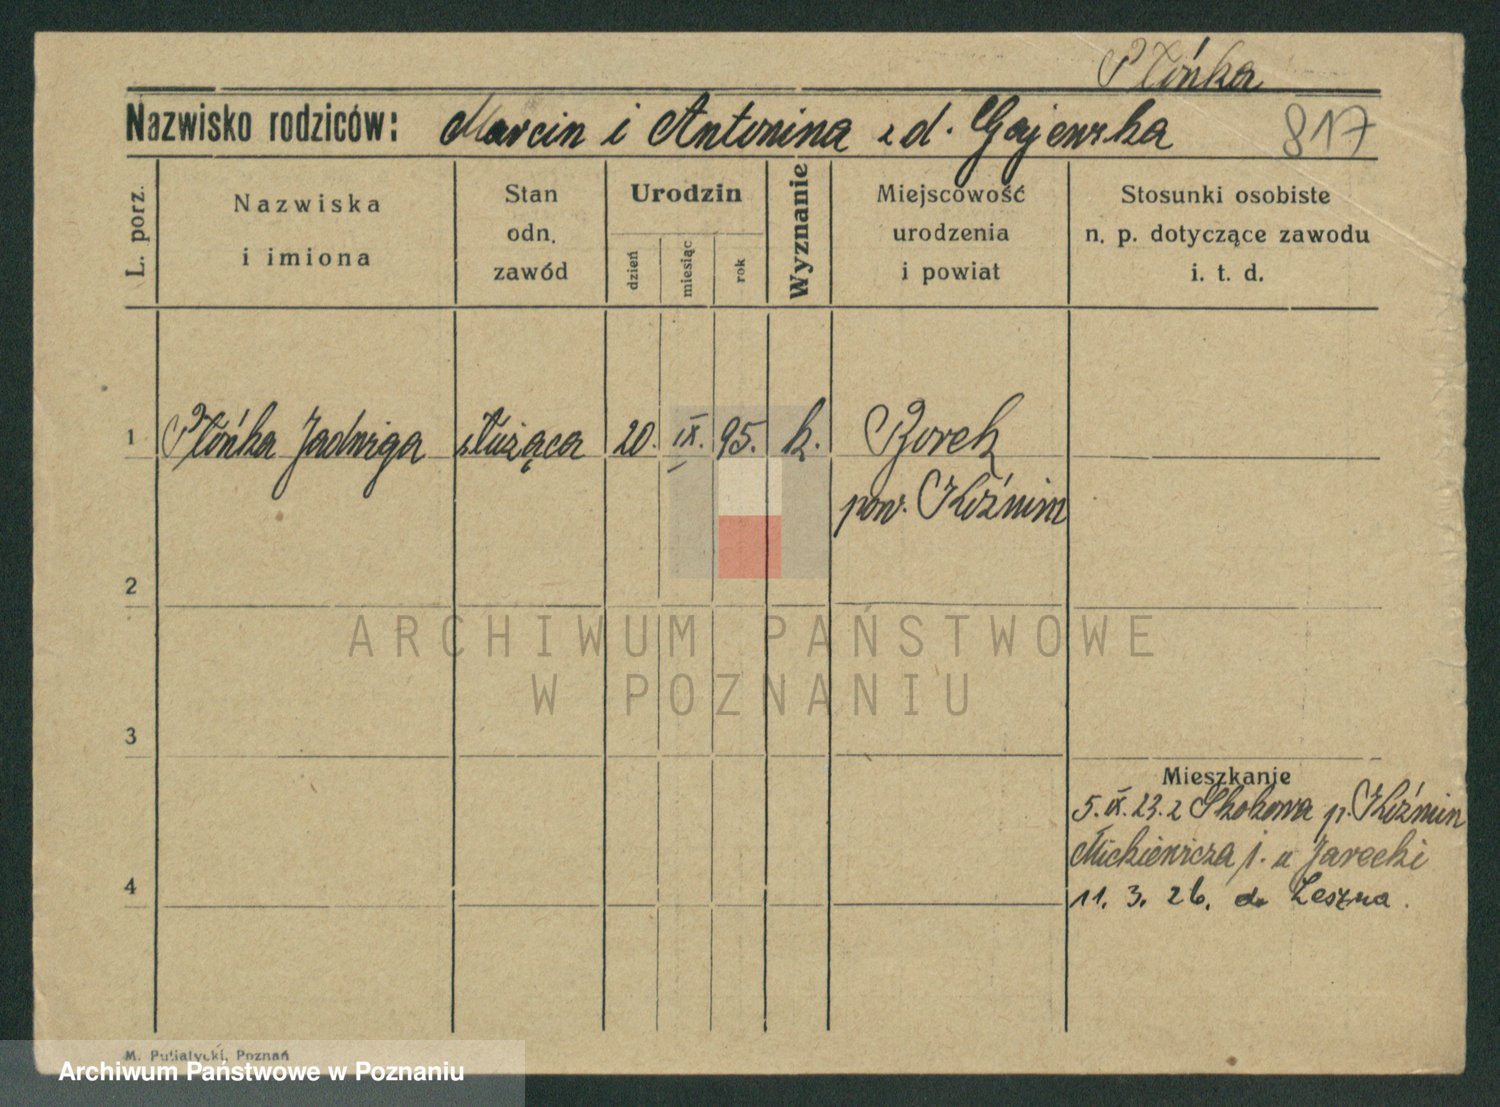 Płońka
Nazwisko rodziców: Marcin i Antonina z d. Gajewska 817
L. porz.
Nazwiska
i imiona
Stan
odn.
zawód
Urodzin
dzień
miesiąc
rok
Wyznanie
Miejscowość
urodzenia
i powiat
Stosunki osobiste
n. p. dotyczące zawodu
i. t. d.
1 Płońka Jadwiga służąca 20. IX. 95. k. Borek
pow. Koźmin
2
ARCHIWUM PAŃSTWOWE
W POZNANIU
3
Mieszkanie
5. IX. 23. z Skokowa p. Koźmin
Mickiewicza j. u Jarecki
4
11. 3. 26. do Leszna.
M. Putiatycki, Poznań
Archiwum Państwowe w Poznaniu